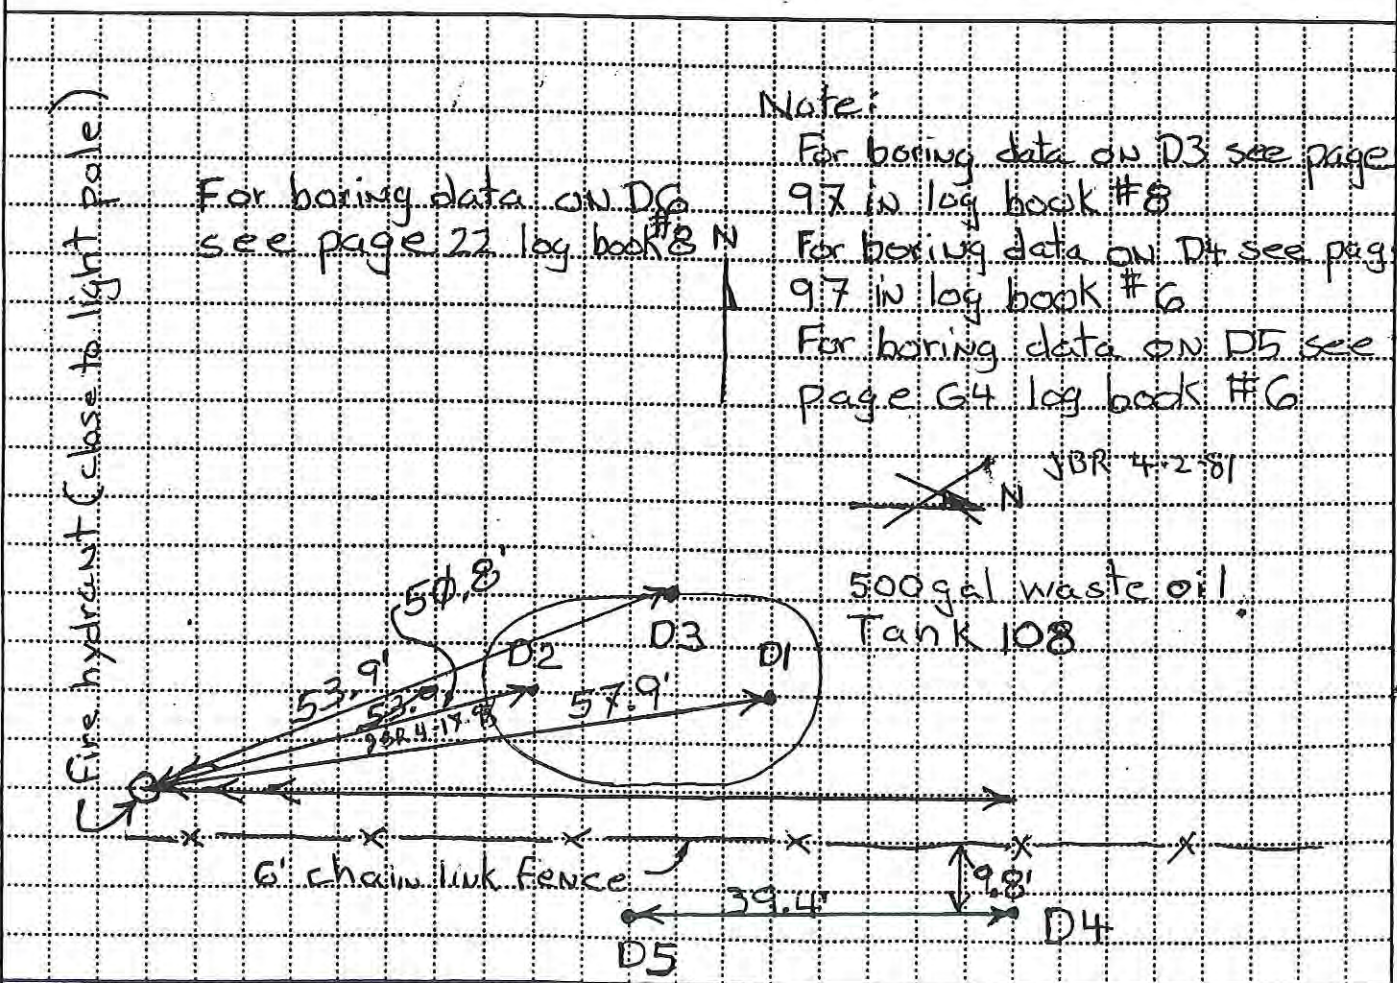 Fire hydrant (close to light pole)
For boring data on D6
see page 22 log book #8
N
Note:
For boring data on D3 see page
97 in log book #8
For boring data on D4 see pag
97 in log book #6
For boring data on D5 see
page 64 log book #6
N
JBR 4-2-81
500 gal waste oil
Tank 108
50.8'
D3
D2
D1
53.9'
53.9
57.9'
JBR
6' chain link fence
9.8'
39.4'
D4
D5